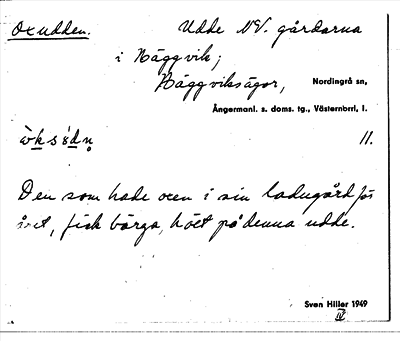 Oxudden.
Udde NV. gårdarna
i Häggvik;
Häggviksägor, Nordingrå sn,
Ångermanl. s. doms. tg., Västernbrrl, l.
11.
Den som hade oxen i sin ladugård för
året, fick bärga höet på denna udde.
Sven Hiller 1949
IV